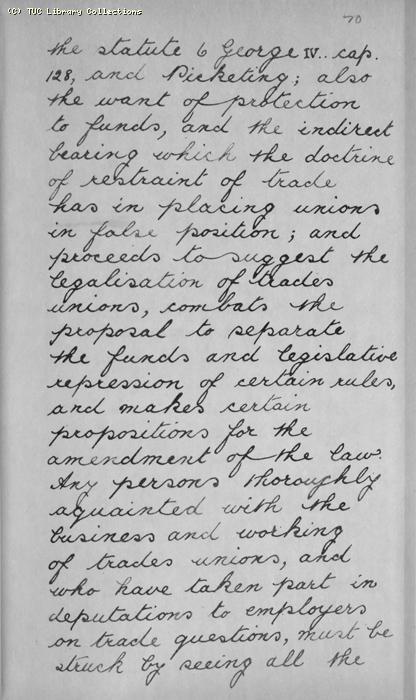 (C) TUC Library Collections
70
the statute 6 George IV.. cap.
128, and Picketing; also
the want of protection
to funds, and the indirect
bearing which the doctrine
of restraint of trade
has in placing unions
in false position; and
proceeds to suggest the
legalisation of trades
unions, combats the
proposal to separate
the funds and legislative
repression of certain rules,
and makes certain
propositions for the
amendment of the law.
Any persons thoroughly
aquainted with the
business and working
of trades unions, and
who have taken part in
deputations to employers
on trade questions, must be
struck by seeing all the